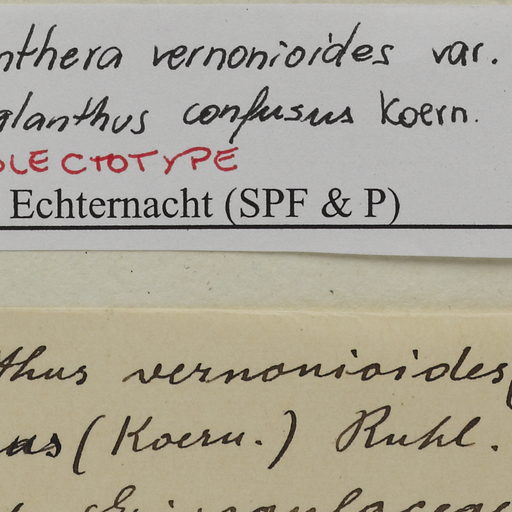 nthera vernonioides var.
alanthus confusus Koern.
OLECTOTYPE
Echternacht (SPF & P)
thus vernonioides (
us (Koern.) Ruhl.